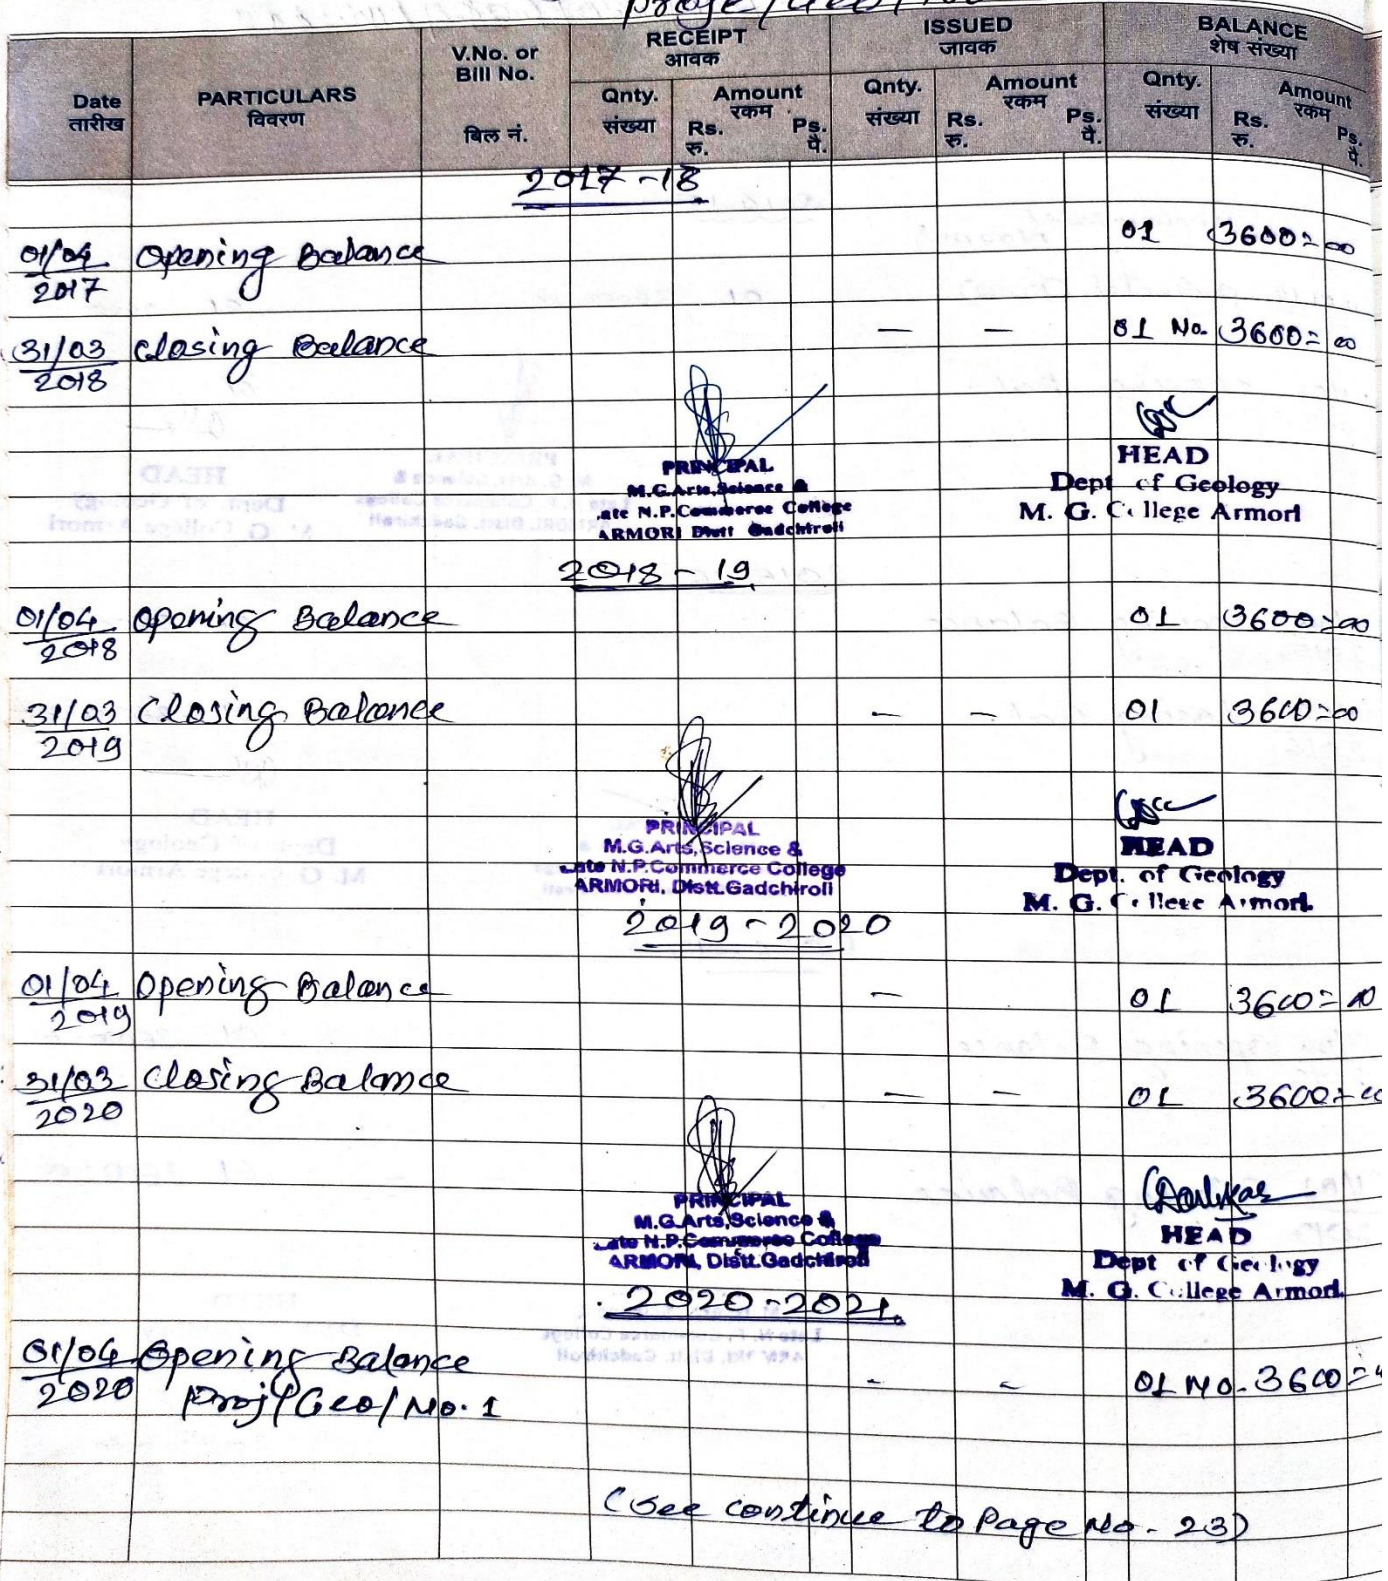 Proje/Geo/No
Date PARTICULARS V.No. or Bill No. RECEIPT ISSUED BALANCE
तारीख विवरण बिल नं. आवक जावक शेष संख्या
Qnty. Amount Qnty. Amount Qnty. Amount
संख्या रकम संख्या रकम संख्या रकम
Rs. Ps. Rs. Ps. Rs. Ps.
रु. पै. रु. पै. रु. पै.
2017-18
01/04/2017 Opening Balance 01 3600=00
31/03/2018 Closing Balance — — 01 No. 3600=00
PRINCIPAL
M.G.Arts,Science &
Late N.P.Commerce College
ARMORI Distt Gadchiroli
HEAD
Dept of Geology
M. G. College Armori
2018-19
01/04/2018 Opening Balance 01 3600=00
31/03/2019 Closing Balance — — 01 3600=00
PRINCIPAL
M.G.Arts,Science &
Late N.P.Commerce College
ARMORI, Distt.Gadchiroli
HEAD
Dept. of Geology
M. G. College Armori.
2019-2020
01/04/2019 Opening Balance — 01 3600=00
31/03/2020 Closing Balance — — 01 3600=00
PRINCIPAL
M.G.Arts,Science &
Late N.P.Commerce College
ARMORI, Distt.Gadchiroli
HEAD
Dept of Geology
M. G. College Armori.
2020-2021.
01/04/2020 Opening Balance - - 01 No. 3600=
Proj/Geo/No.1
(See continue to Page No. 23)